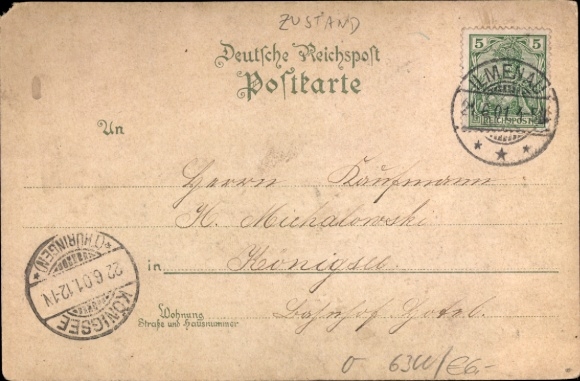 ZUSTAND
Deutsche Reichspost
Postkarte
5 5
ILMENAU
An
Herrn Kaufmann
H. Michalowski
in Königsee
Wohnung
Straße und Hausnummer
Bahnhof Hotel.
KÖNIGSEE
22.6.01.12-1N.
*(THÜRINGEN)*